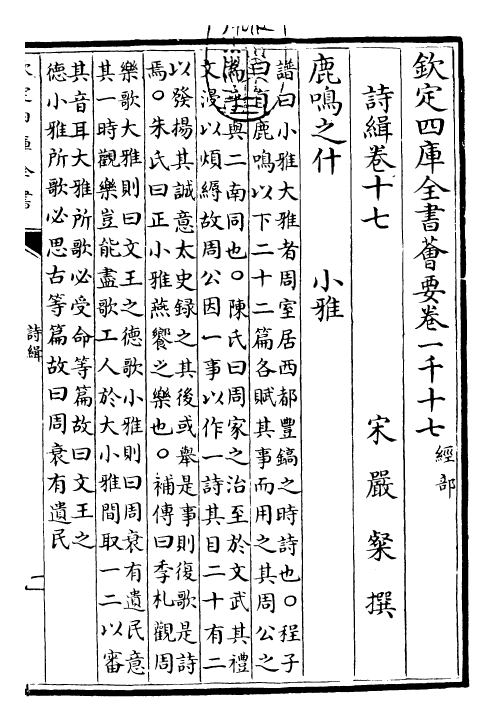 欽定四庫全書薈要卷一千十七 經部
詩緝卷十七
宋 嚴粲 撰
鹿鳴之什 小雅
譜曰小雅大雅者周室居西都豐鎬之時詩也○程子
曰自鹿鳴以下二十二篇各賦其事而用之其周公之
為與二南同也○陳氏曰周家之治至於文武其禮
文漫以煩縟故周公因一事以作一詩其目二十有二
以發揚其誠意太史錄之其後或舉是事則復歌是詩
焉○朱氏曰正小雅燕饗之樂也○補傳曰季札觀周
樂歌大雅則曰文王之德歌小雅則曰周衰有遺民意
其一時觀樂豈能盡歌工人於大小雅間取一二以審
其音耳大雅所歌必受命等篇故曰文王之
德小雅所歌必思古等篇故曰周衰有遺民
欽定四庫全書
詩緝
一